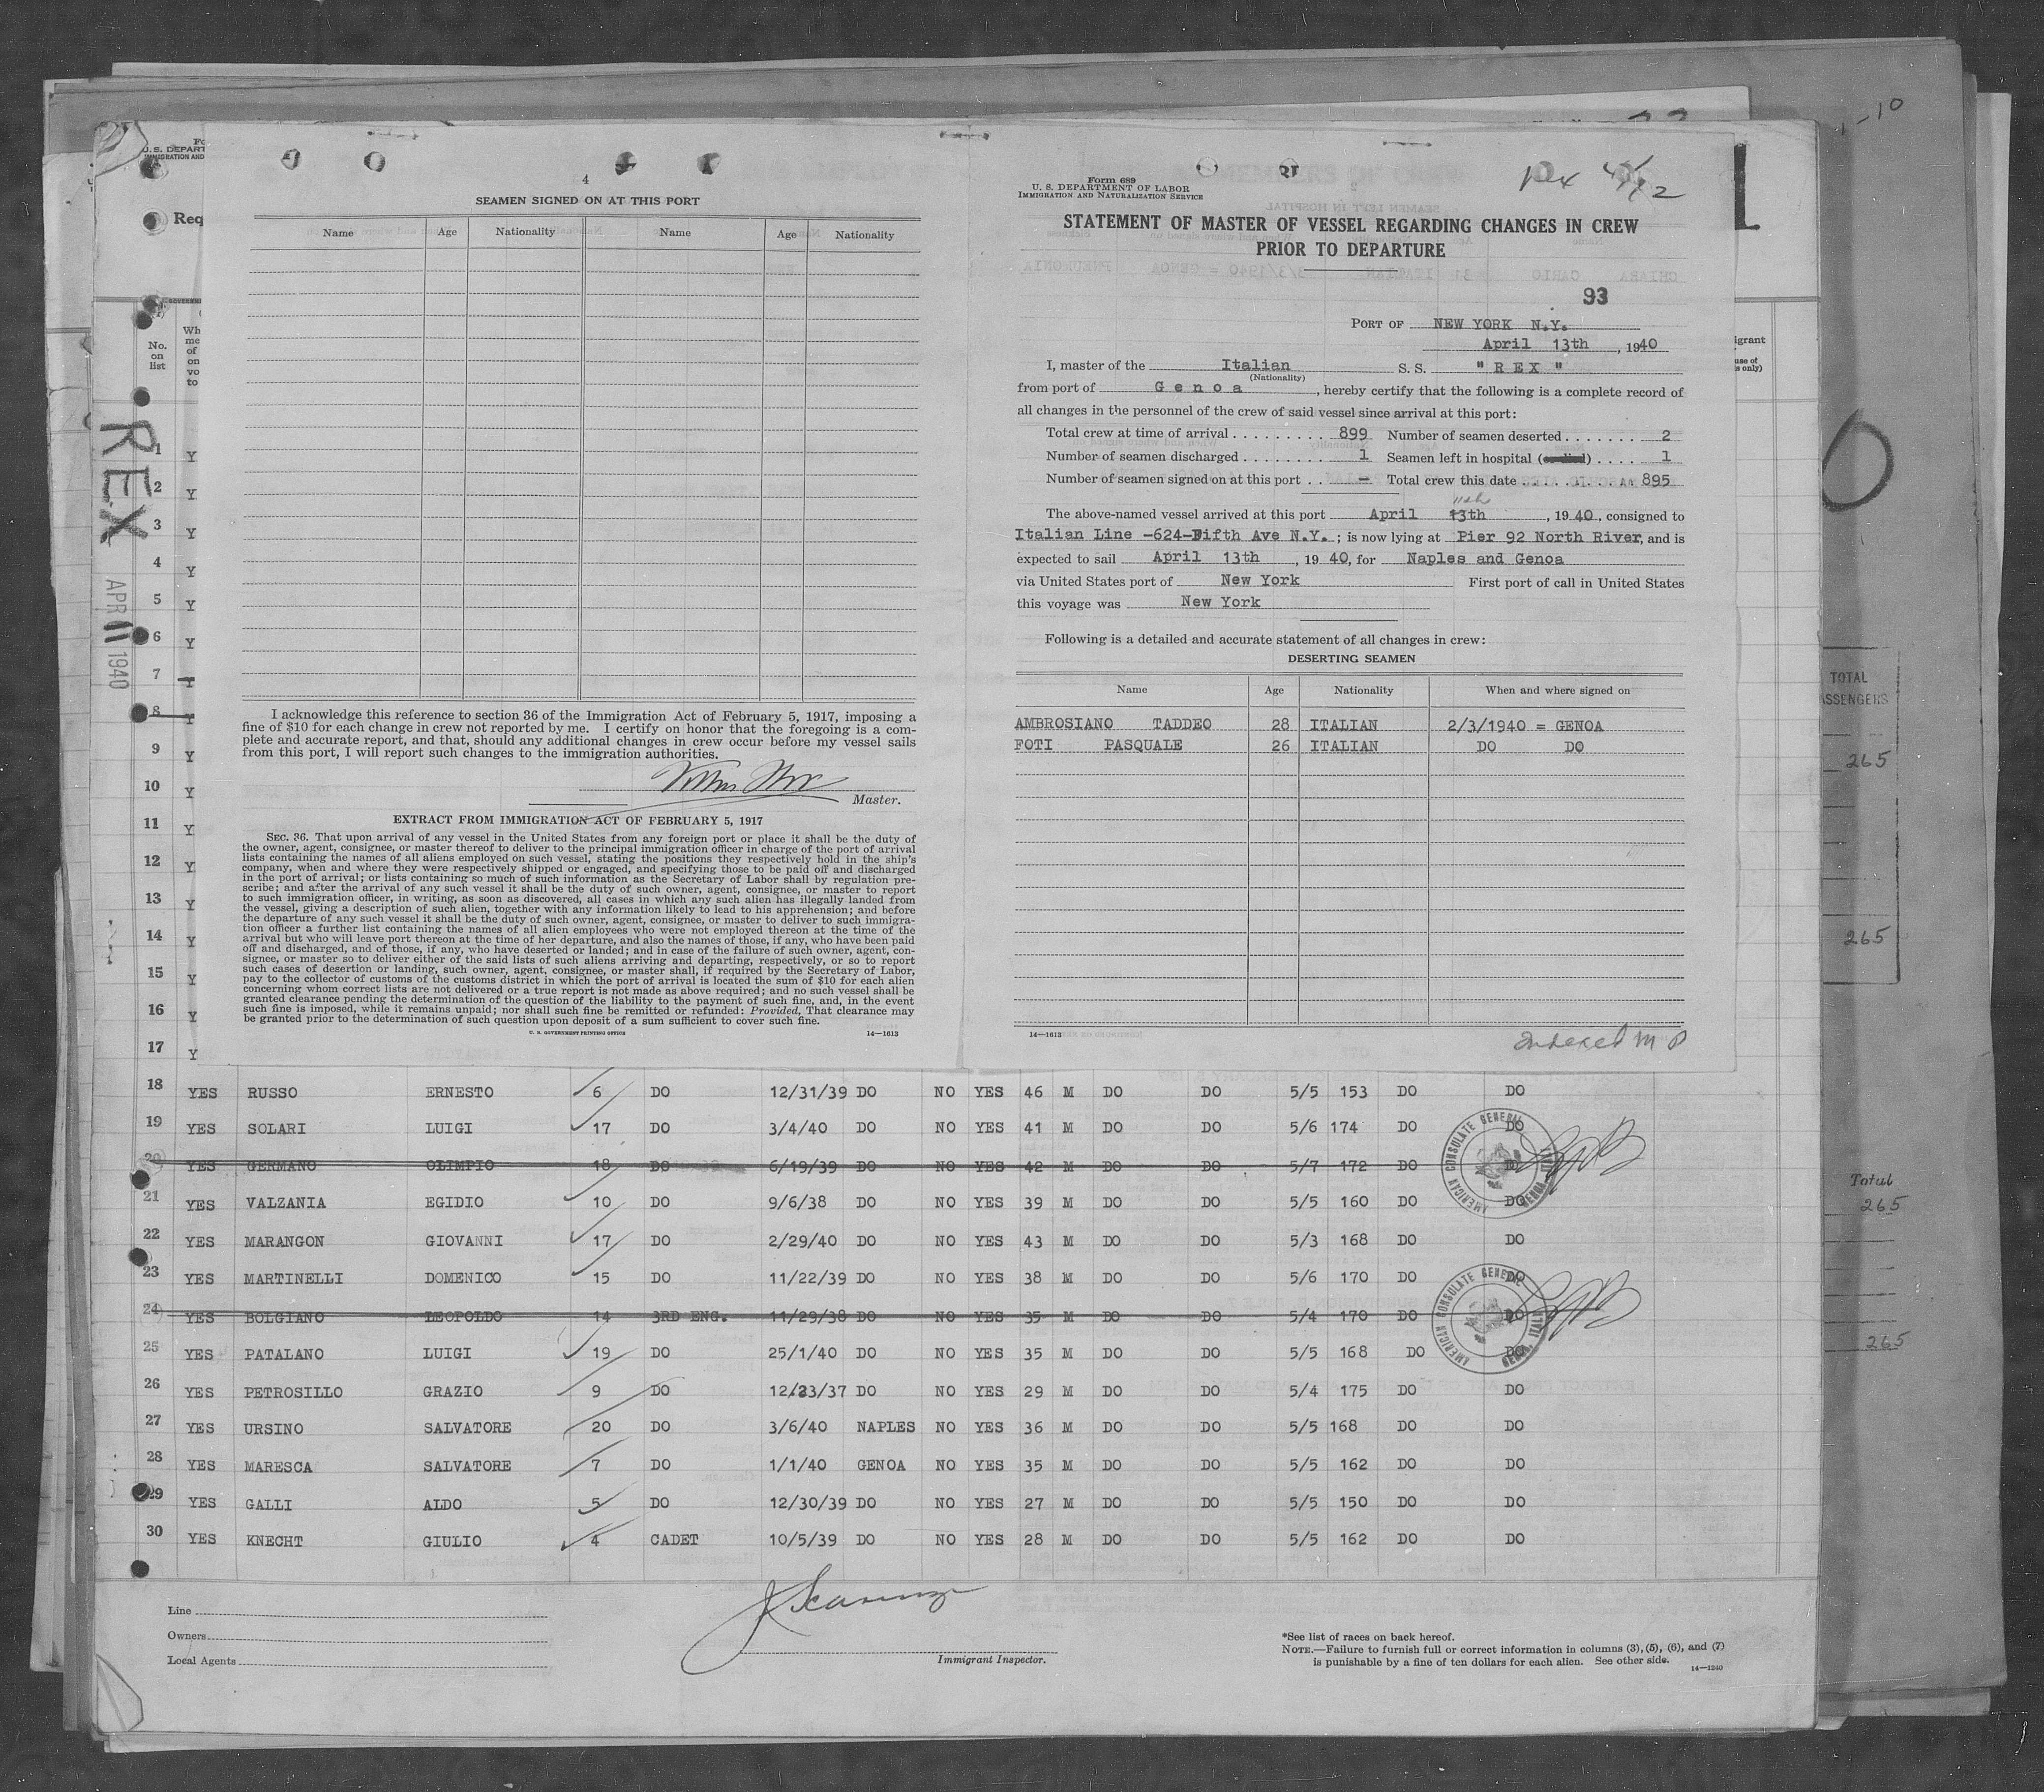 4
SEAMEN SIGNED ON AT THIS PORT
Name Age Nationality Name Age Nationality
I acknowledge this reference to section 36 of the Immigration Act of February 5, 1917, imposing a
fine of $10 for each change in crew not reported by me. I certify on honor that the foregoing is a com-
plete and accurate report, and that, should any additional changes in crew occur before my vessel sails
from this port, I will report such changes to the immigration authorities.
Master.
EXTRACT FROM IMMIGRATION ACT OF FEBRUARY 5, 1917
SEC. 36. That upon arrival of any vessel in the United States from any foreign port or place it shall be the duty of
the owner, agent, consignee, or master thereof to deliver to the principal immigration officer in charge of the port of arrival
lists containing the names of all aliens employed on such vessel, stating the positions they respectively hold in the ship's
company, when and where they were respectively shipped or engaged, and specifying those to be paid off and discharged
in the port of arrival; or lists containing so much of such information as the Secretary of Labor shall by regulation pre-
scribe; and after the arrival of any such vessel it shall be the duty of such owner, agent, consignee, or master to report
to such immigration officer, in writing, as soon as discovered, all cases in which any such alien has illegally landed from
the vessel, giving a description of such alien, together with any information likely to lead to his apprehension; and before
the departure of any such vessel it shall be the duty of such owner, agent, consignee, or master to deliver to such immigra-
tion officer a further list containing the names of all alien employees who were not employed thereon at the time of the
arrival but who will leave port thereon at the time of her departure, and also the names of those, if any, who have been paid
off and discharged, and of those, if any, who have deserted or landed; and in case of the failure of such owner, agent, con-
signee, or master so to deliver either of the said lists of such aliens arriving and departing, respectively, or so to report
such cases of desertion or landing, such owner, agent, consignee, or master shall, if required by the Secretary of Labor,
pay to the collector of customs of the customs district in which the port of arrival is located the sum of $10 for each alien
concerning whom correct lists are not delivered or a true report is not made as above required; and no such vessel shall be
granted clearance pending the determination of the question of the liability to the payment of such fine, and, in the event
such fine is imposed, while it remains unpaid; nor shall such fine be remitted or refunded: Provided, That clearance may
be granted prior to the determination of such question upon deposit of a sum sufficient to cover such fine.
U. S. GOVERNMENT PRINTING OFFICE 14—1613
Form 689
U. S. DEPARTMENT OF LABOR
IMMIGRATION AND NATURALIZATION SERVICE
STATEMENT OF MASTER OF VESSEL REGARDING CHANGES IN CREW
PRIOR TO DEPARTURE
93
PORT OF NEW YORK N.Y.
April 13th, 1940
I, master of the Italian S. S. " R E X "
(Nationality)
from port of G e n o a, hereby certify that the following is a complete record of
all changes in the personnel of the crew of said vessel since arrival at this port:
Total crew at time of arrival 899 Number of seamen deserted 2
Number of seamen discharged 1 Seamen left in hospital 1
Number of seamen signed on at this port — Total crew this date 895
11th
The above-named vessel arrived at this port April 13th, 1940, consigned to
Italian Line -624-Fifth Ave N.Y.; is now lying at Pier 92 North River, and is
expected to sail April 13th, 1940, for Naples and Genoa
via United States port of New York First port of call in United States
this voyage was New York
Following is a detailed and accurate statement of all changes in crew:
DESERTING SEAMEN
Name Age Nationality When and where signed on
AMBROSIANO TADDEO 28 ITALIAN 2/3/1940 = GENOA
FOTI PASQUALE 26 ITALIAN DO DO
14—1613
Indexed M P
U. S. DEPART
Req
No. on list
REX
APR 11 1940
1 Y
2 Y
3 Y
4 Y
5 Y
6 Y
7
8
9 Y
10 Y
11 Y
12 Y
13 Y
14 Y
15 Y
16 Y
17 Y
18 YES RUSSO ERNESTO 6 DO 12/31/39 DO NO YES 46 M DO DO 5/5 153 DO DO
19 YES SOLARI LUIGI 17 DO 3/4/40 DO NO YES 41 M DO DO 5/6 174 DO DO
20 YES GERMANO OLIMPIO 18 DO 6/19/39 DO NO YES 42 M DO DO 5/7 172 DO D
21 YES VALZANIA EGIDIO 10 DO 9/6/38 DO NO YES 39 M DO DO 5/5 160 DO DO
22 YES MARANGON GIOVANNI 17 DO 2/29/40 DO NO YES 43 M DO DO 5/3 168 DO DO
23 YES MARTINELLI DOMENICO 15 DO 11/22/39 DO NO YES 38 M DO DO 5/6 170 DO DO
24 YES BOLGIANO LEOPOLDO 14 3RD ENG. 11/29/38 DO NO YES 35 M DO DO 5/4 170 DO DO
25 YES PATALANO LUIGI 19 DO 25/1/40 DO NO YES 35 M DO DO 5/5 168 DO DO
26 YES PETROSILLO GRAZIO 9 DO 12/23/37 DO NO YES 29 M DO DO 5/4 175 DO DO
27 YES URSINO SALVATORE 20 DO 3/6/40 NAPLES NO YES 36 M DO DO 5/5 168 DO DO
28 YES MARESCA SALVATORE 7 DO 1/1/40 GENOA NO YES 35 M DO DO 5/5 162 DO DO
29 YES GALLI ALDO 5 DO 12/30/39 DO NO YES 27 M DO DO 5/5 150 DO DO
30 YES KNECHT GIULIO 4 CADET 10/5/39 DO NO YES 28 M DO DO 5/5 162 DO DO
AMERICAN CONSULATE GENERAL GENOA, ITALY
AMERICAN CONSULATE GENERAL GENOA, ITALY
Line
Owners
Local Agents
Immigrant Inspector.
*See list of races on back hereof.
NOTE.—Failure to furnish full or correct information in columns (3), (5), (6), and (7)
is punishable by a fine of ten dollars for each alien. See other side.
14—1240
TOTAL
265
265
Total
265
265